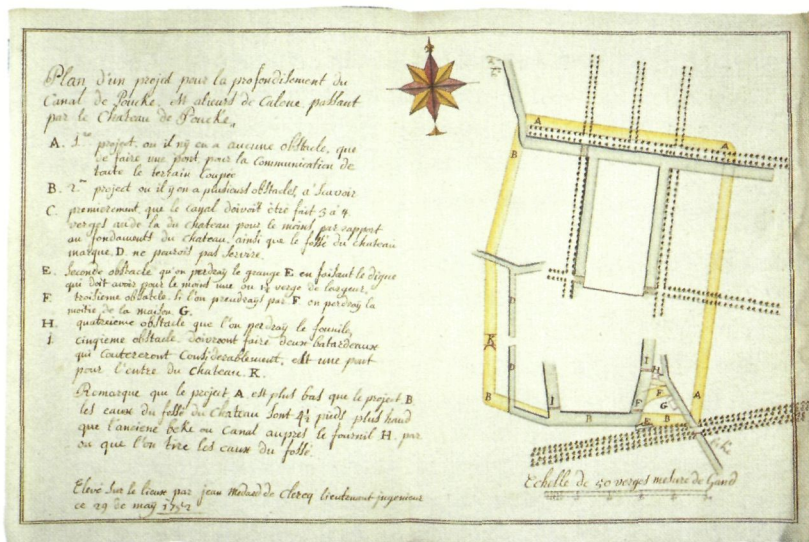 Plan d'un projet pour la profondisement du
Canal de Poucke, St alieurs de Caloue, passant
par le Chateau de Poucke,,
A. 1.re project, ou il n'y en a aucune obstacle, que
de faire une pont, pour la communication de
toute le terrain coupée
B. 2.me project ou il y en a plusieurs obstacles, a scavoir
C. premierement, que le canal doivoit être fait 3 à 4
verges au de la du chateau pour le moins, par rapport
au fondaments du chateau, ainsi que le fossé du chateau
marqué. D. ne pouroit pas servire.
E. Seconde obstacle qu'on perdray le grange E. en faisant le digue
qui doit avoir pour le moins une ou 1½ verge de largeur.
F. troisieme obstacle. si l'on prendrays par F. on perdray la
moitie de la maison. G.
H. quatreieme obstacle que l'on perdray le fournile,
I. cinqieme obstacle. doivront faire deux batardeaux
qui couteront considerablement, est une pont
pour l'entre du chateau. K.
Remarque que le project A. est plus bas que le project. B
les eaux du fossé du chateau sont 4½ pieds plus haud
que l'anciene beke ou Canal aupres le fournil H. par
ou que l'on tire les eaux du fossé.
Elevé sur le lieux par jean Medard de Clercq lieutenant ingenieur
ce 29 de maÿ 1752
beke
A
A
B
D
K
D
B
I
B
I
H
F
F
G
E
B
A
beke
Echelle de 50 verges mesure de Gand